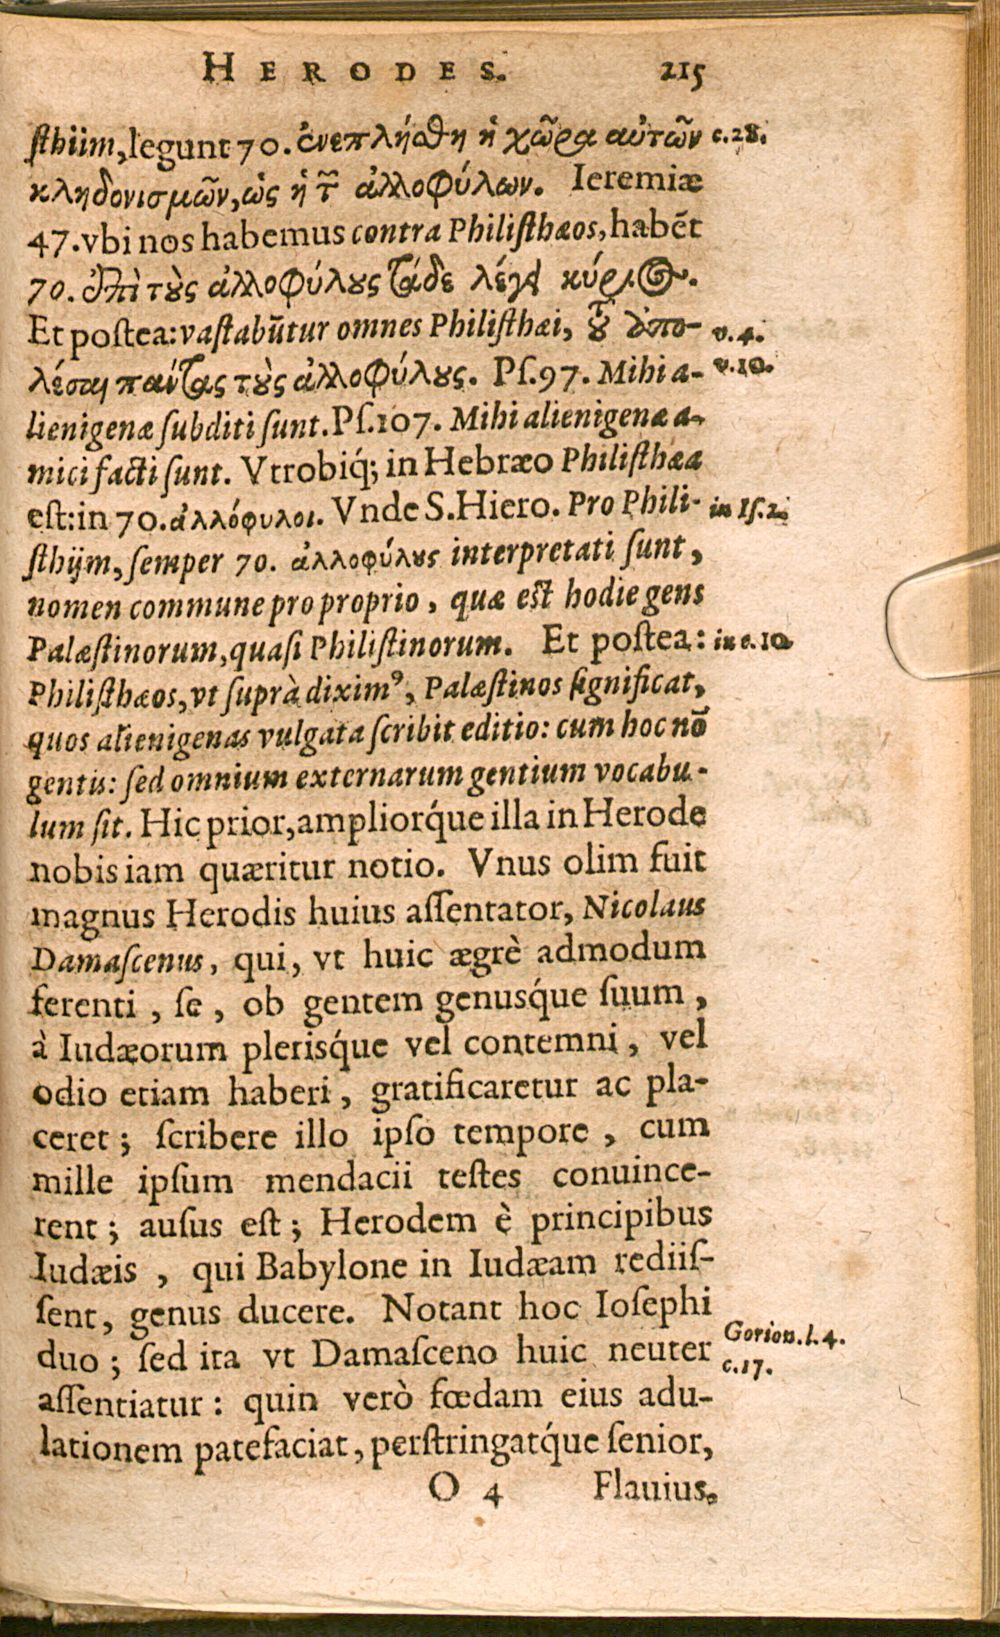 HERODES. 215
sthiim, legunt 70. ἐνεπλήσθη ἡ χῶρα αὐτῶν c.28.
κληδονισμῶν, ὡς ἡ τ῀ ἀλλοφύλων. Ieremiæ
47. vbi nos habemus contra Philisthæos, habēt
70. ἐπὶ τοὺς ἀλλοφύλους τάδε λέγει κύριος.
Et postea: vastabūtur omnes Philisthæi, τοῦ ἀπο- v.4.
λέσαι πάντας τοὺς ἀλλοφύλους. Ps.97. Mihi a- v.10.
lienigenæ subditi sunt. Ps.107. Mihi alienigenæ a-
mici facti sunt. Vtrobiq́; in Hebræo Philisthæa
est: in 70. ἀλλόφυλοι. Vnde S. Hiero. Pro Phili- in Is.2.
sthijm, semper 70. ἀλλοφύλους interpretati sunt,
nomen commune pro proprio, quæ est hodie gens
Palæstinorum, quasi Philistinorum. Et postea: in c.10.
Philisthæos, vt suprà diximꝰ, Palæstinos significat,
quos alienigenas vulgata scribit editio: cum hoc nō
gentis: sed omnium externarum gentium vocabu-
lum sit. Hic prior, ampliorq́ue illa in Herode
nobis iam quæritur notio. Vnus olim fuit
magnus Herodis huius assentator, Nicolaus
Damascenus, qui, vt huic ægrè admodum
ferenti, se, ob gentem genusq́ue suum,
à Iudæorum plerisq́ue vel contemni, vel
odio etiam haberi, gratificaretur ac pla-
ceret; scribere illo ipso tempore, cum
mille ipsum mendacii testes conuince-
rent; ausus est; Herodem è principibus
Iudæis, qui Babylone in Iudæam rediis-
sent, genus ducere. Notant hoc Iosephi
duo; sed ita vt Damasceno huic neuter Gorion.l.4.
c.17.
assentiatur: quin verò fœdam eius adu-
lationem patefaciat, perstringatq́ue senior,
O 4 Flauius.